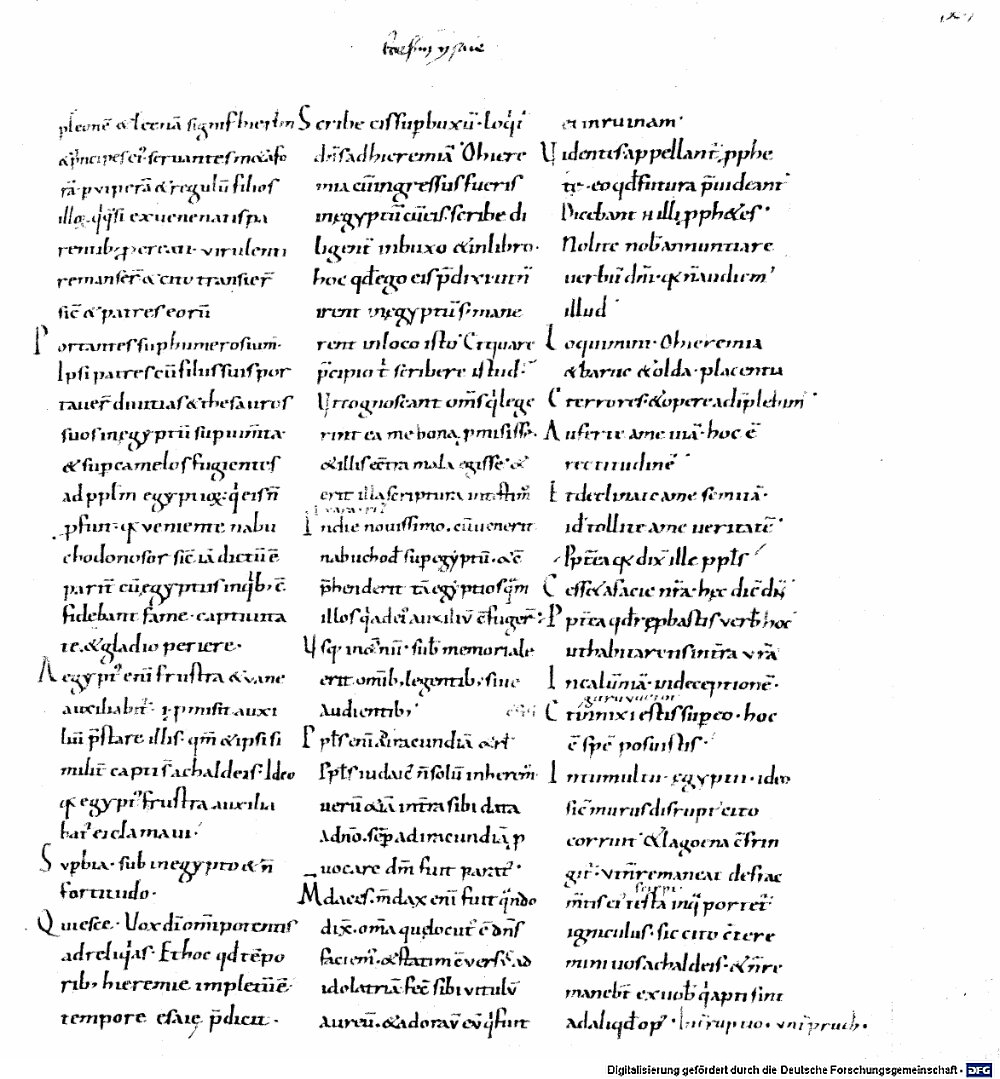 p leonē & leenā signif hierlm
& principes ei' seruantes me & afo
rā p uiperā & regulū filios
illoꝝ qui ex uenenatis pa
rentib; virulenti
remanser̄ & cito transier̄
sic̄ & patres eorū
Portantes sup humeros ium̄
Ipsi patres cū filiis suis por
tauer̄ diuitias & thesauros
suos in egyptū sup ium̄ta
& sup camelos fugientes
ad pplm egyptioꝝ qi eis ñ
pfuit quia ueniente nabu
chodonosor sic̄ iā dictū ē
parit̄ cū egyptiis in qib; c̄
fidebant fame captiuita
te & gladio periere
Aegypt' eni frustra & uane
auxiliabit̄ i pmisit auxi
liū p̄stare illis qm̄ & ipsi si
milit̄ capti s̄ a chaldeis Ideo
q egypt' frustra auxilia
bat' ei clamaui
Supbia sub in egypto & ñ
fortitudo
Quiesce Uox dī omīpotentis
ad reliqias Et hoc qd tēpo
rib; hieremie impletū ē
tempore esaię p̄dicit
Scribe eis sup buxū loqi'
dn̄s ad hieremiā O hiere
mia cū ingressus fueris
in egyptū cū eis scribe di
ligent̄ in buxo & in libro
hoc qd ego eis p̄dixi ut ñ
irent in egyptū s; mane
rent in loco isto Et quare
p̄cipio t̄ scribere istud
Ut cognoscant om̄s qi lege
rint ea me bona pmisisse
& illis c̄tra mala egisse &
erit illa scriptura in testim̄
In die nouissimo cū uenerit
nabuchod sup egyptū & ē
p̄henderit tā egyptios qm̄
illos qi ad ei' auxiliū c̄fuger̄
Usq in &nū sub memoriale
erit omīb; legentib; siue
audientib;
Ppls eni ad iracundiā est
Ppls iudaic' ñ solū in herem̄
uerū &iā intra sibi data
ad no semp ad iracundiā p
uocare dm̄ fuit parat'
Mdaces mdax eni fuit qndo
dix̄ om̄a que locut' ē dn̄s
faciem' & statim c̄uers' ad
idolatriā fec̄ sibi uitulū
aureū & adorau eū qi fuit
ei in ruinam
Uidentes appellant̄ pphe
te eo qd futura p̄uideant
Dicebant ñ illi pph&es
Nolite nob annuntiare
uerbū dn̄i quia ñ audiem'
illud
Loquimini O hieremia
& baruc & olda placentia
Et errores & opere adiplebim'
Auferte a me uiā hoc ē
rectitudinē
Et declinate a me semitā
id tollite a me ueritatē
Ppt̄ea quia dix̄ ille ppls
Cess& a facie nrā hęc dic̄ dn̄s
Ppt̄ea qd repbastis uerb hoc
ut habitarens intra urā
In calūniā in deceptionē
Et innixi estis sup eo hoc
ē spē posuistis
In tumultu egyptii ideo
sic̄ murus disrupt' cito
corruit & lagoena c̄frin
git' ut ñ remaneat de frac
mtis ei' testa in q portet'
igniculus sic cito c̄tere
mini uos a chaldeis & ñ re
manebt ex uob qi apti sint
ad aliqd op'
Digitalisierung gefördert durch die Deutsche Forschungsgemeinschaft - DFG